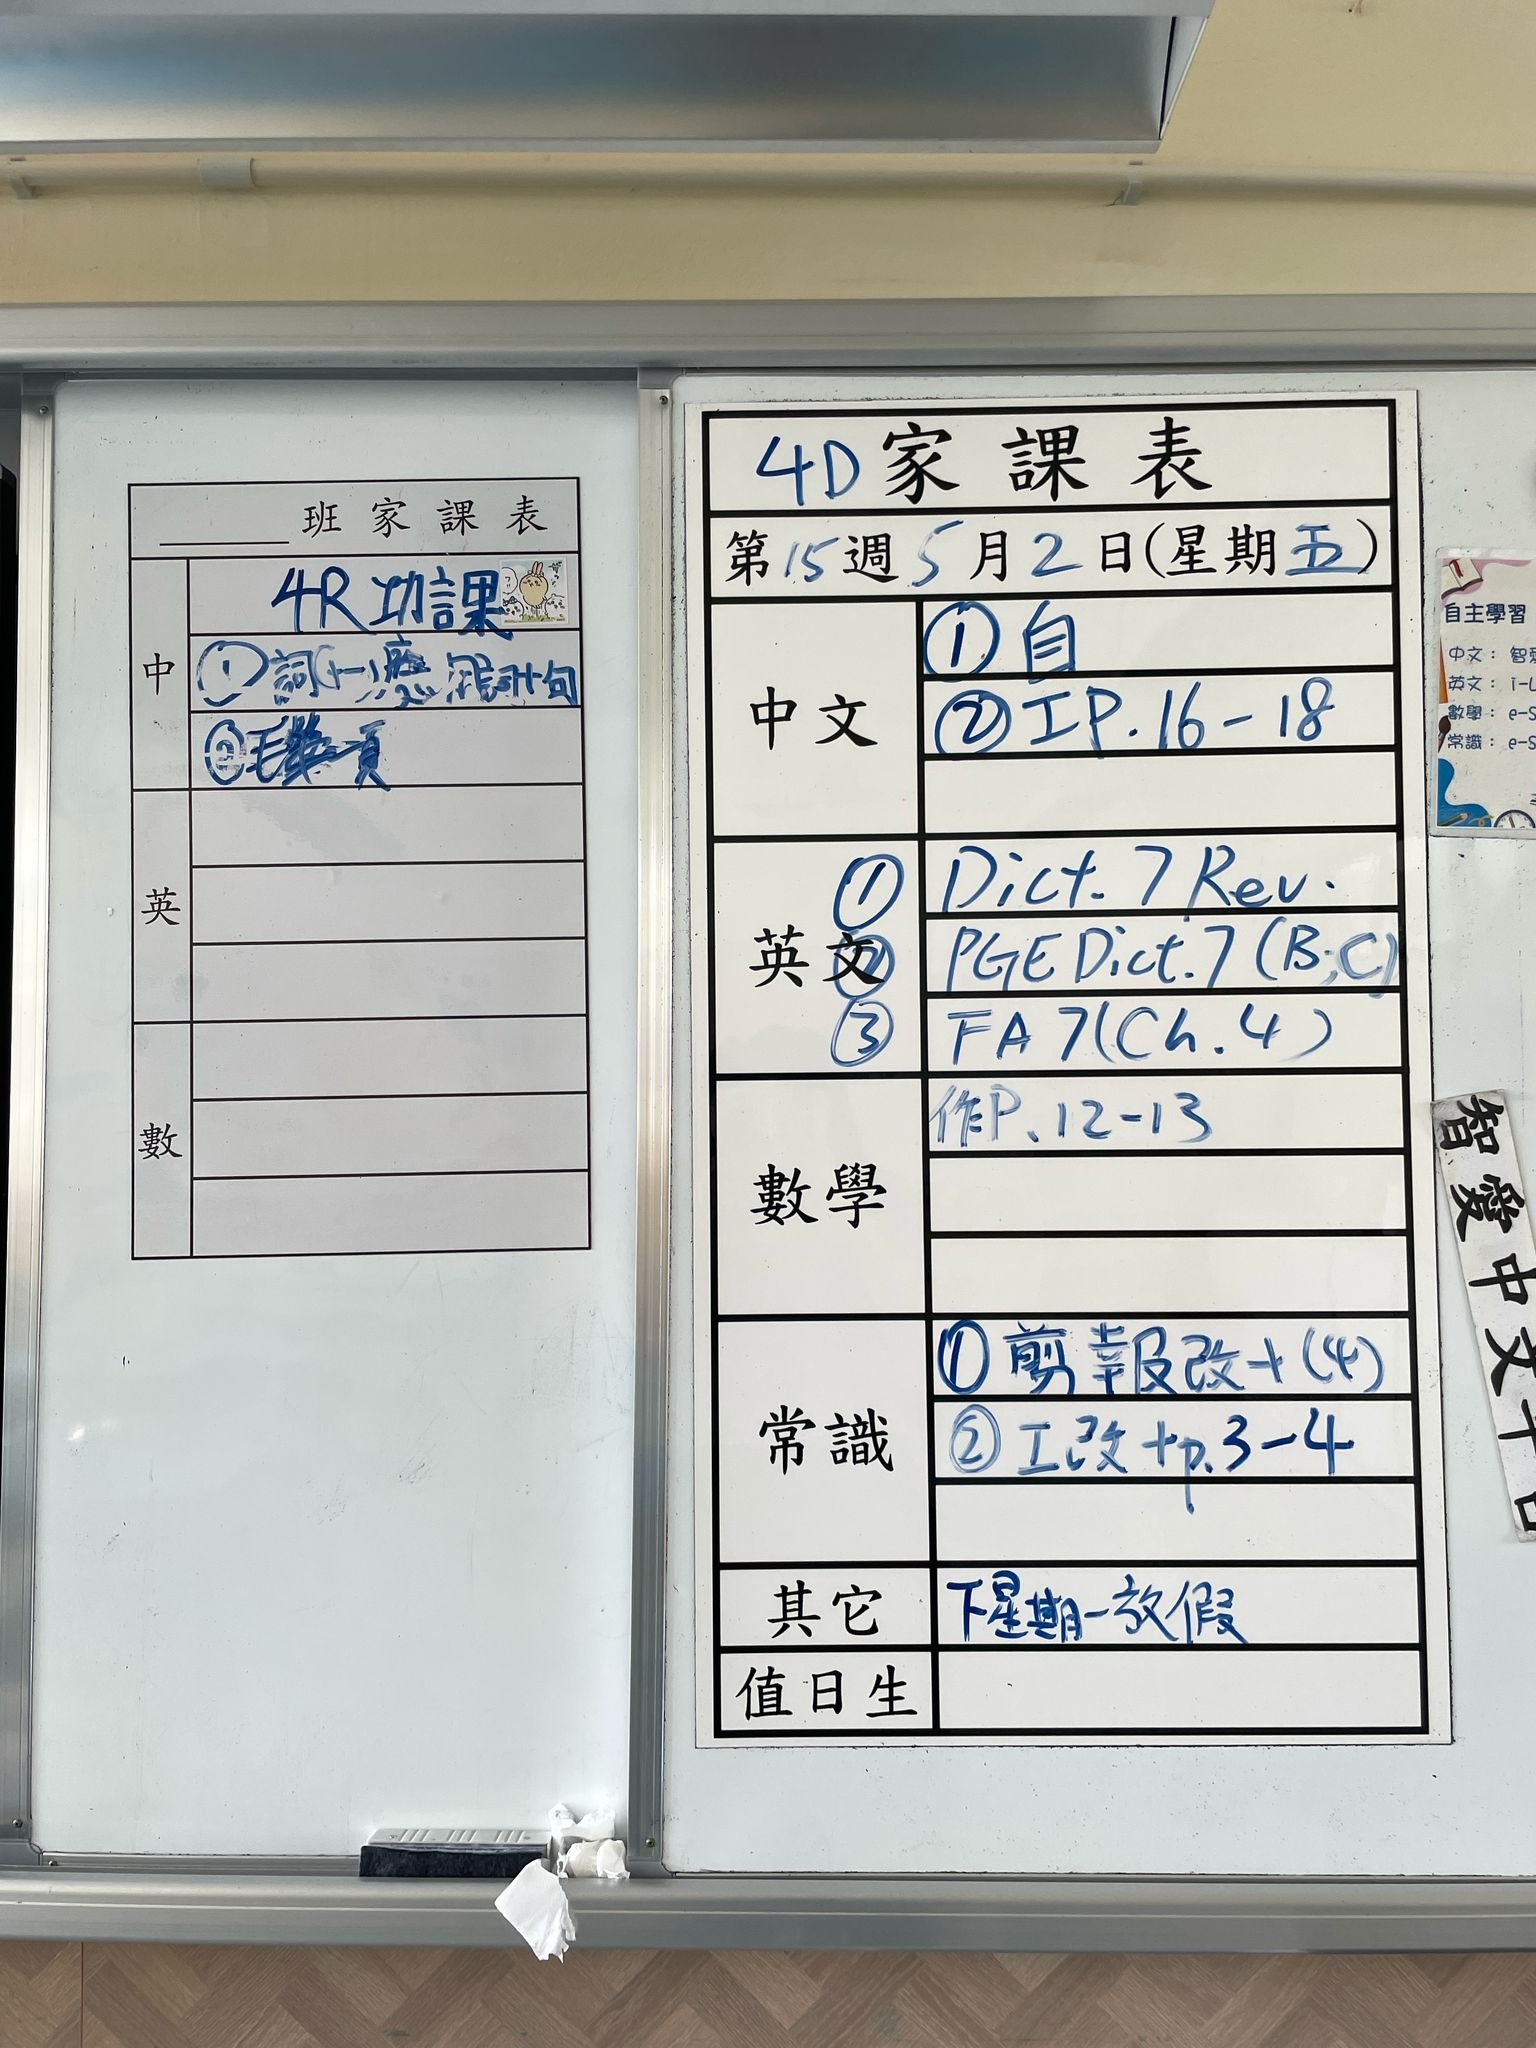 班家課表
中
4R功課
①詞十句
②毛筆一頁
英
數
4D家課表
第15週5月2日(星期五)
中文
①自
②工P.16-18
英文
①Dict.7 Rev.
②PGE Dict.7(B,C)
③FA7(Ch.4)
數學
作P.12-13
常識
①剪報改+(4)
②工改+p.3-4
其它
下星期一放假
值日生
自主學習
中文：智愛
英文：i-L
數學：e-S
常識：e-S
智愛中文平台